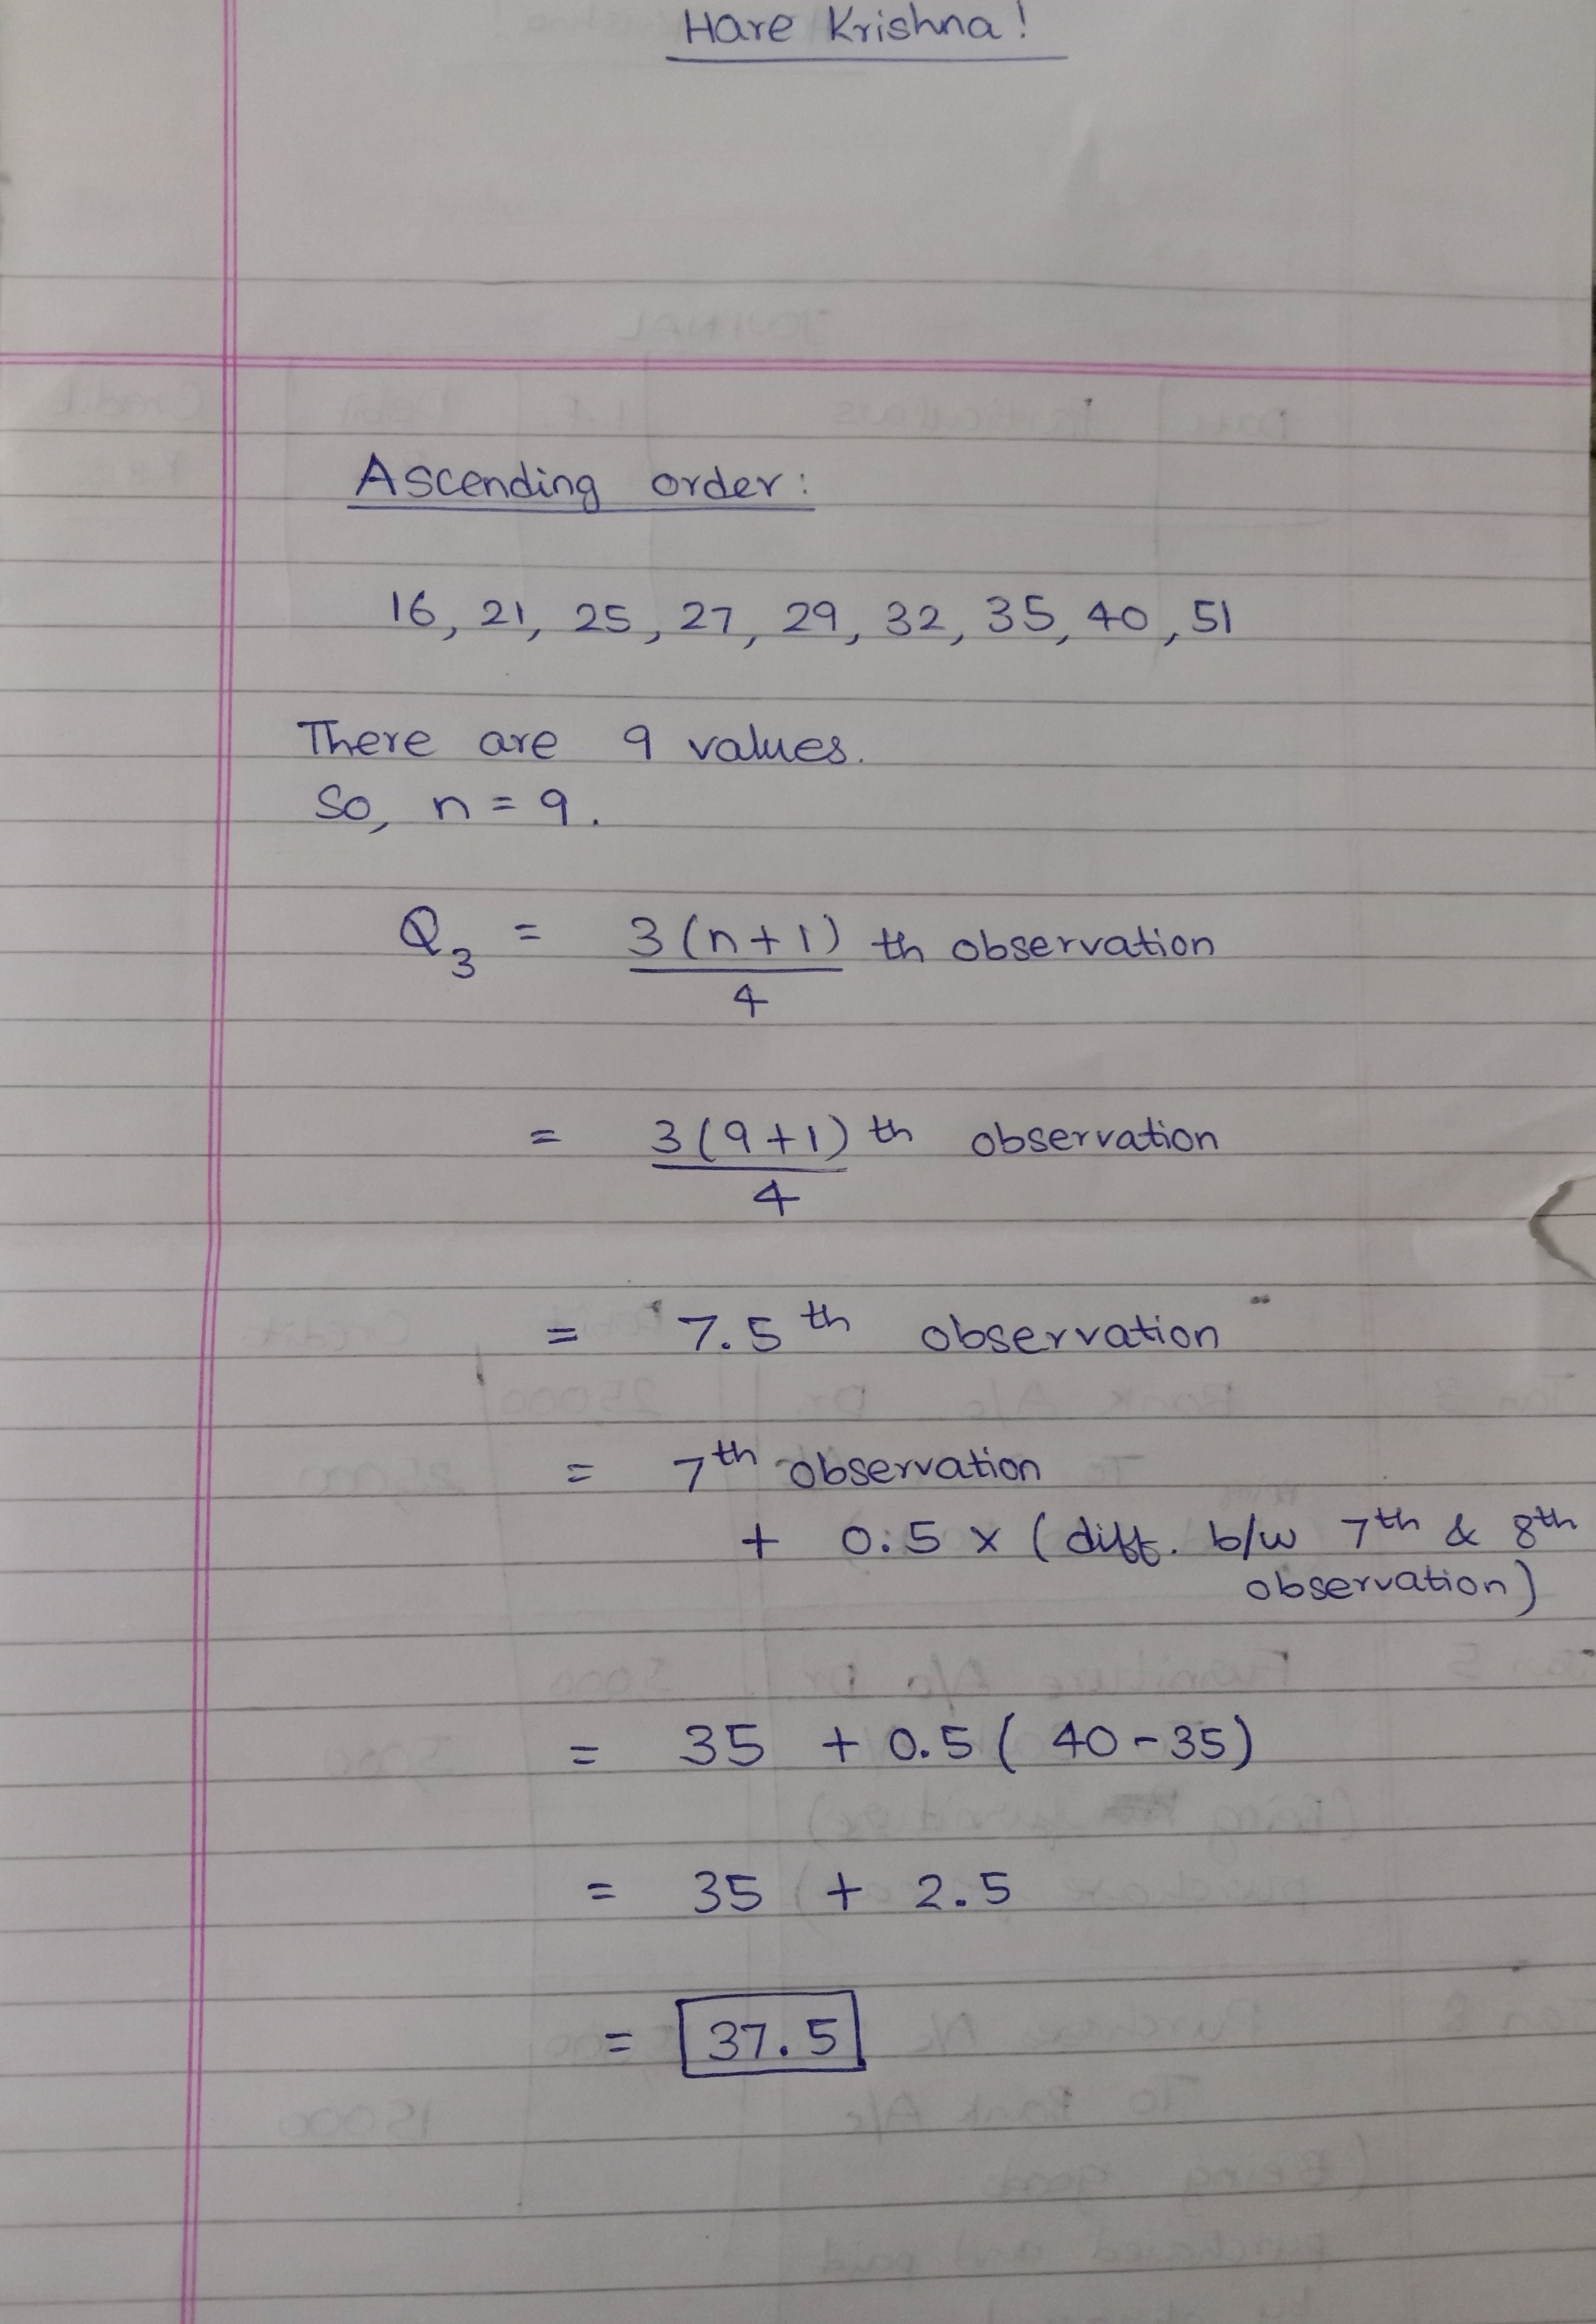 Hare Krishna!
Ascending order:
16, 21, 25, 27, 29, 32, 35, 40, 51
There are 9 values.
So, n = 9.
Q3 = 3(n+1) th observation
4
= 3(9+1) th observation
4
= 7.5 th observation
= 7th observation
+ 0.5 x (diff. b/w 7th & 8th
observation)
= 35 + 0.5 (40-35)
= 35 + 2.5
= 37.5